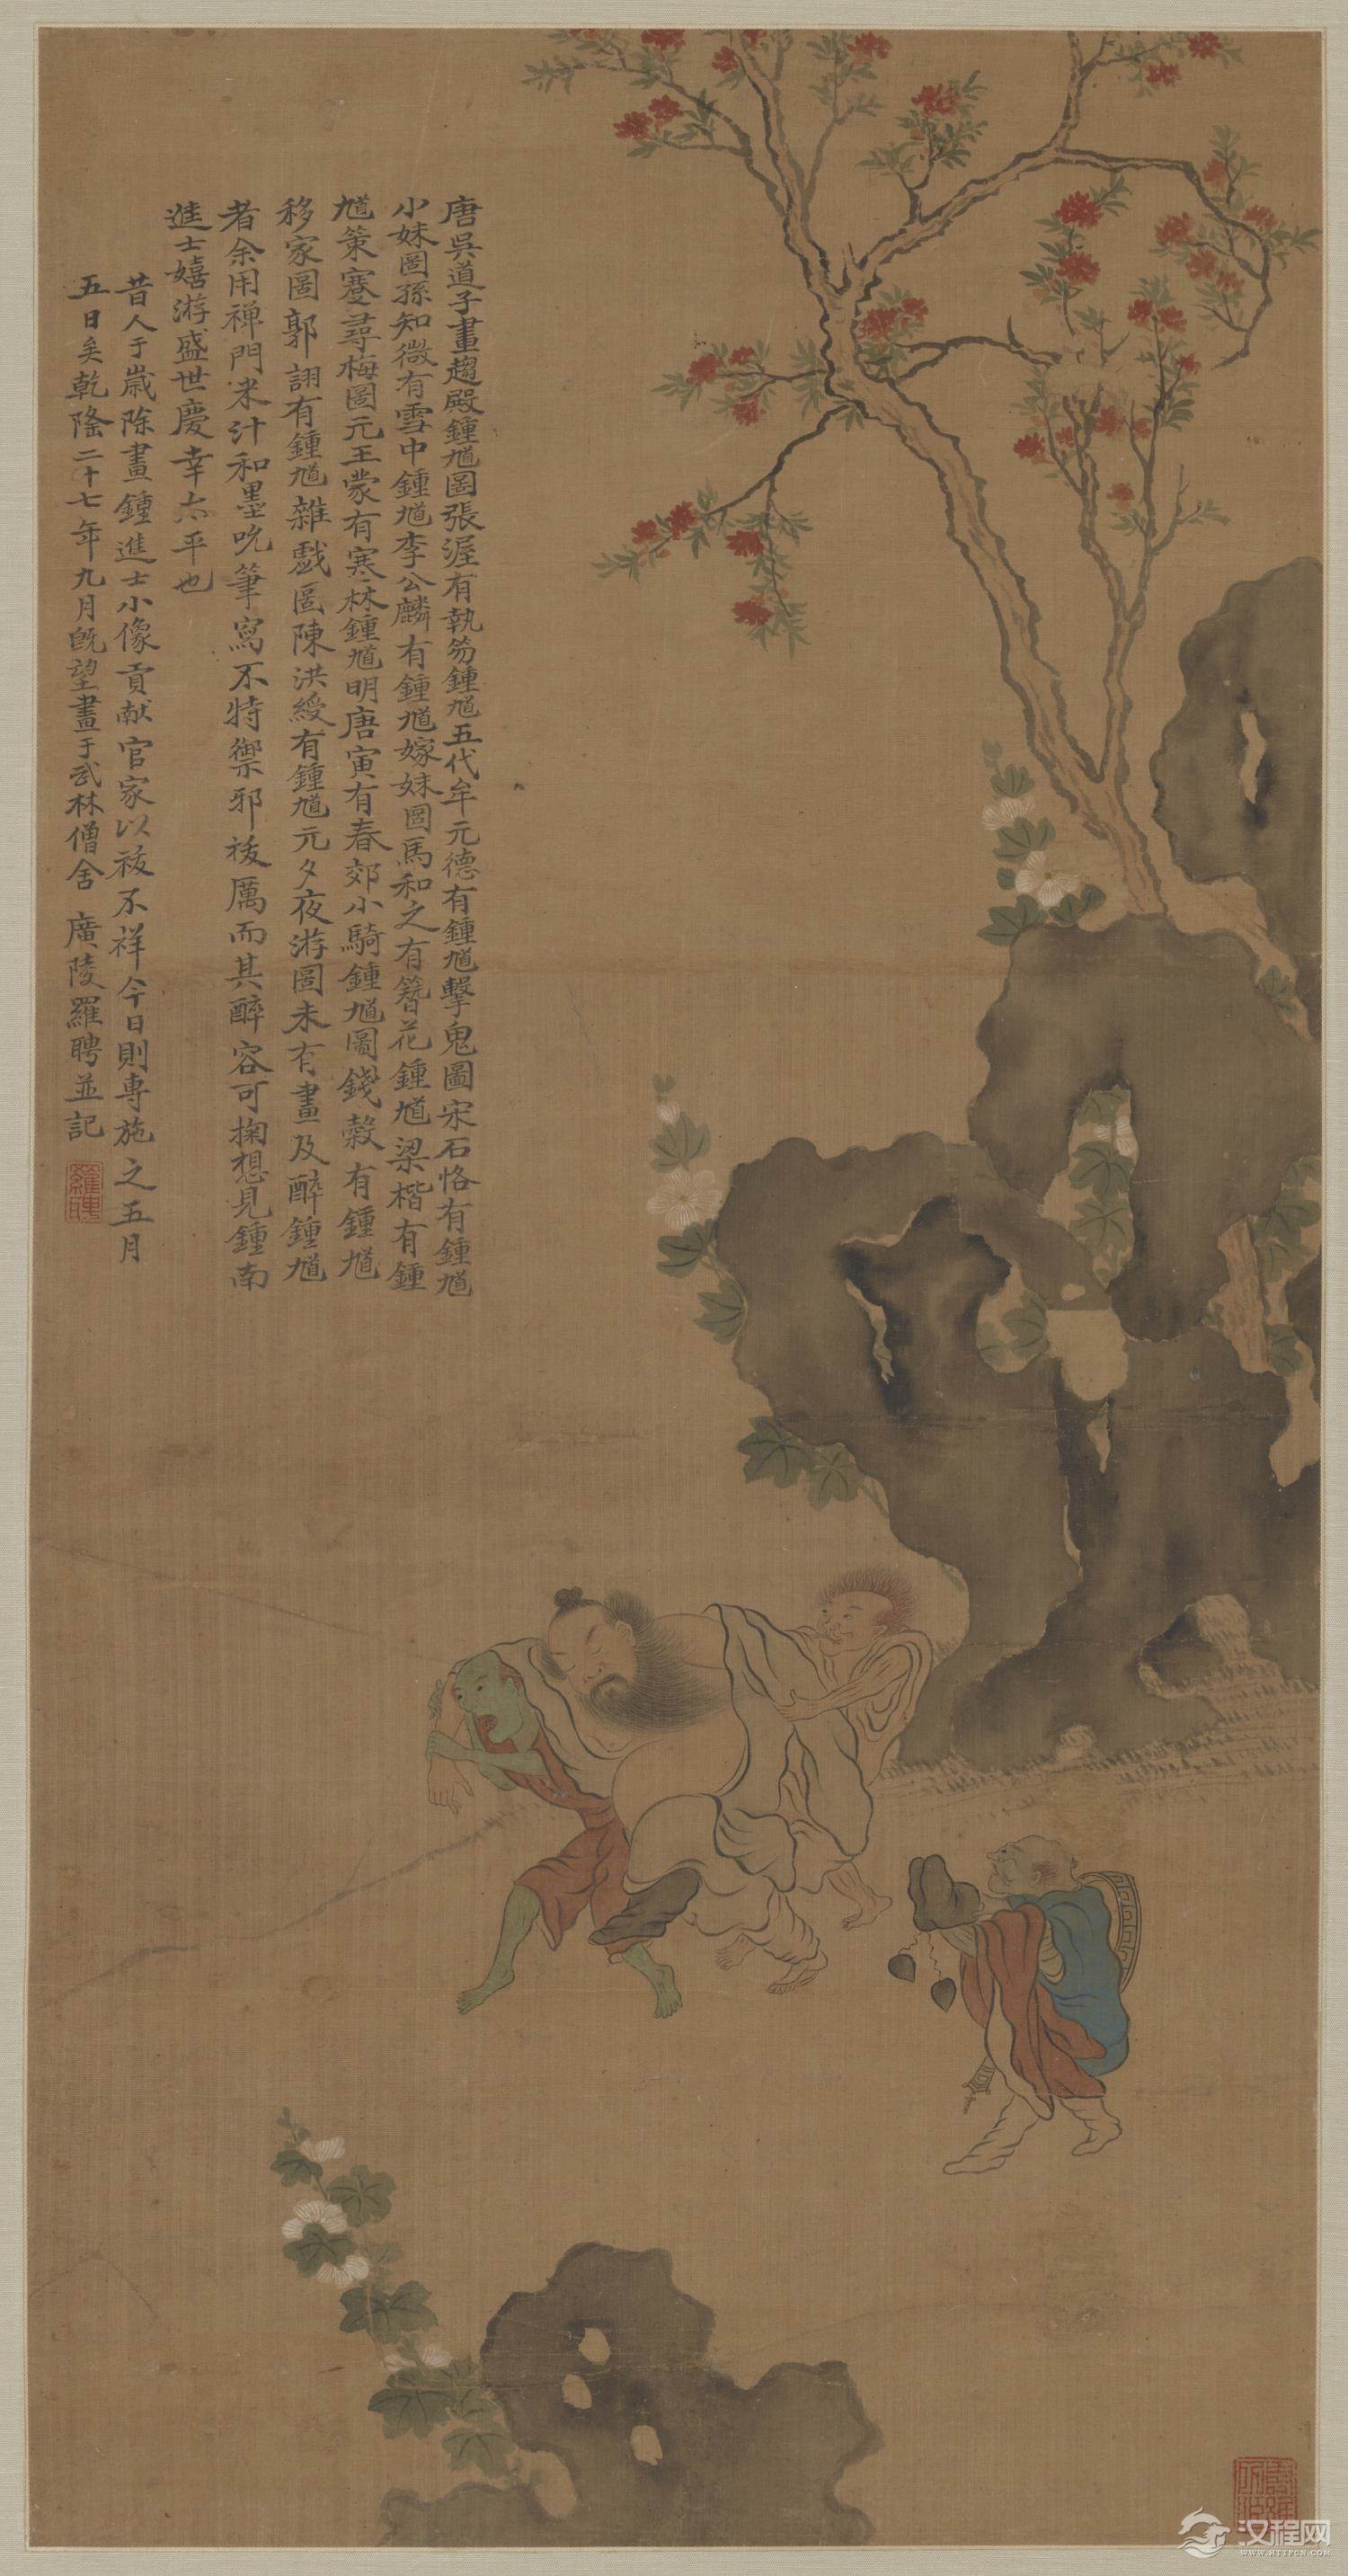 唐吳道子畫趨殿鍾馗圖張渥有執笏鍾馗五代牟元德有鍾馗擊鬼圖宋石恪有鍾馗
小妹圖孫知微有雪中鍾馗李公麟有鍾馗嫁妹圖馬和之有簪花鍾馗梁楷有鍾
馗策蹇尋梅圖元王蒙有寒林鍾馗明唐寅有春郊小騎鍾馗圖錢穀有鍾馗
移家圖郭詡有鍾馗雜戲啚陳洪綬有鍾馗元夕夜游圖未有畫及醉鍾馗
者余用禪門米汁和墨吮筆寫不特禦邪祓厲而其醉容可掬想見鍾南
進士嬉游盛世慶幸太平也
昔人于歲除畫鍾進士小像貢献官家以祓不祥今日則專施之五月
五日矣乾隆二十七年九月旣望畫于武林僧舍 廣陵羅聘並記
羅聘
汉程网
WWW.HTTPCN.COM